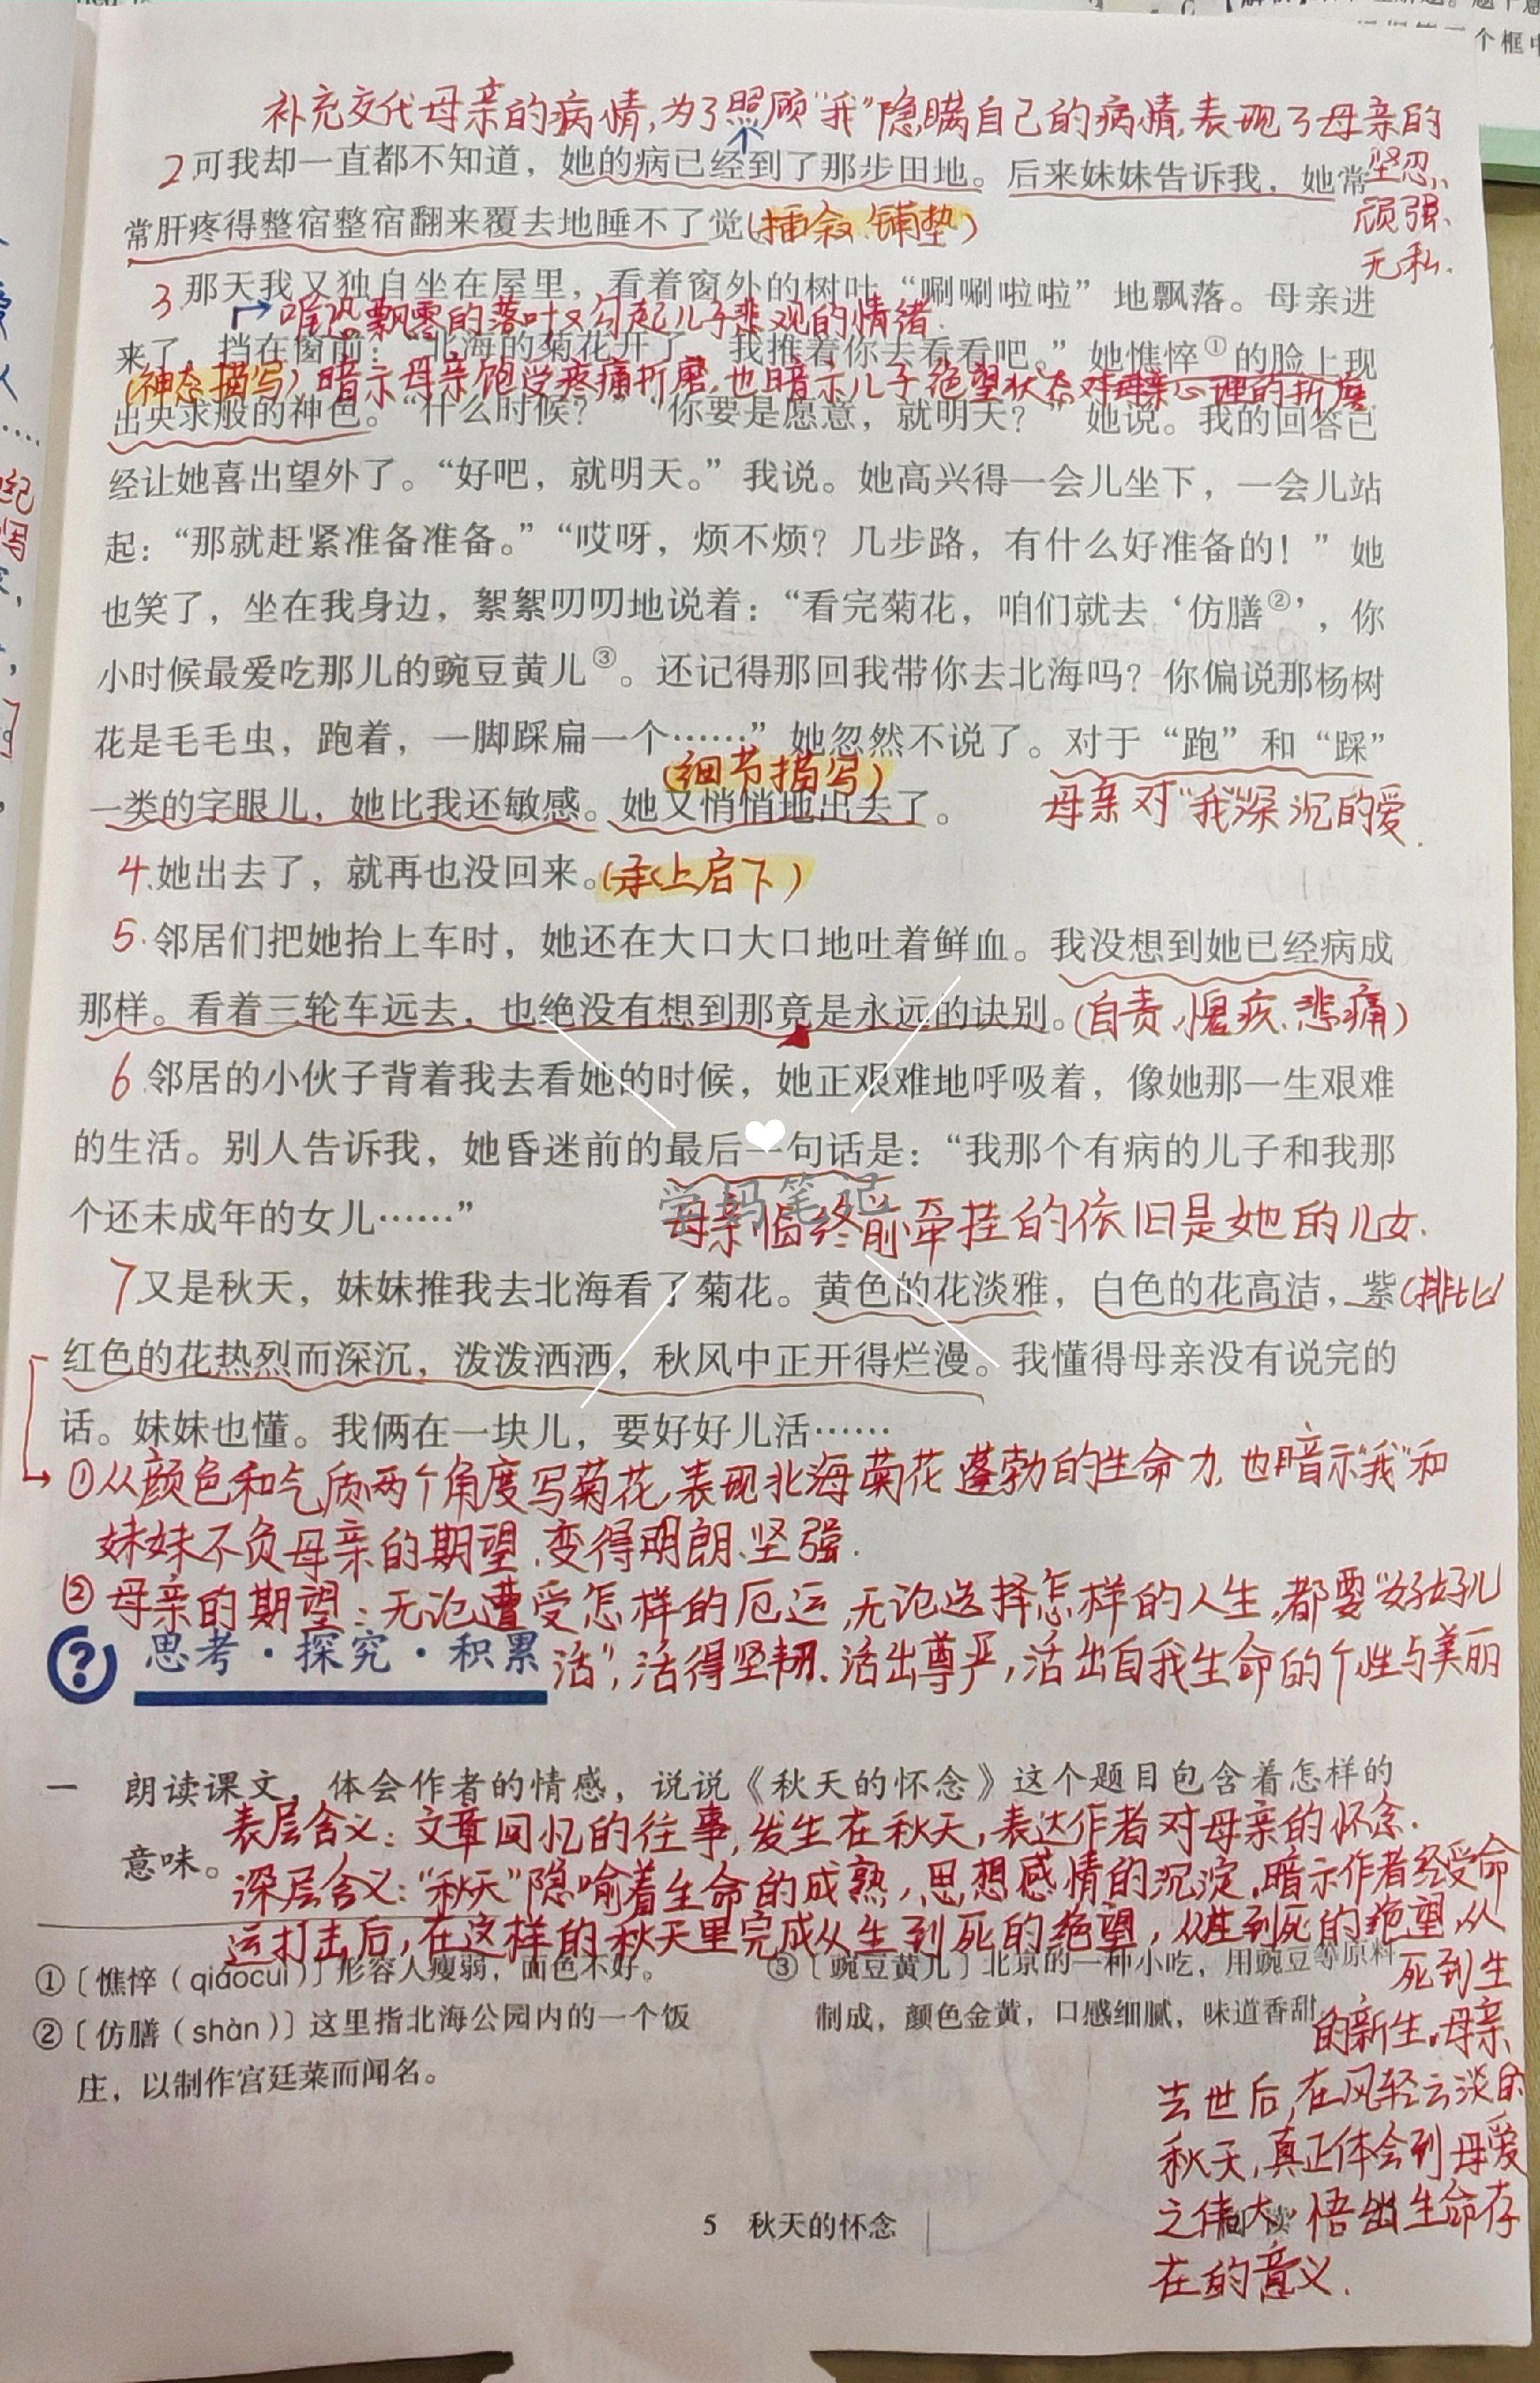 补充交代母亲的病情,为了照顾“我”隐瞒自己的病情,表现了母亲的
坚忍、
顽强、
无私.
2可我却一直都不知道，她的病已经到了那步田地。后来妹妹告诉我，她常
常肝疼得整宿整宿翻来覆去地睡不了觉
(插叙、铺垫)
3.那天我又独自坐在屋里，看着窗外的树叶“唰唰啦啦”地飘落。母亲进
飘零的落叶又勾起儿子悲观的情绪.
来了，挡在窗前：“北海的菊花开了，我推着你去看看吧。”她憔悴①的脸上现
(神态描写)暗示母亲饱受疼痛折磨,也暗示儿子绝望状态对母亲心理的折磨.
出央求般的神色。“什么时候？”“你要是愿意，就明天？”她说。我的回答已
经让她喜出望外了。“好吧，就明天。”我说。她高兴得一会儿坐下，一会儿站
起：“那就赶紧准备准备。”“哎呀，烦不烦？几步路，有什么好准备的！”她
也笑了，坐在我身边，絮絮叨叨地说着：“看完菊花，咱们就去‘仿膳②’，你
小时候最爱吃那儿的豌豆黄儿③。还记得那回我带你去北海吗？你偏说那杨树
花是毛毛虫，跑着，一脚踩扁一个……”她忽然不说了。对于“跑”和“踩”
(细节描写)
一类的字眼儿，她比我还敏感。她又悄悄地出去了。
母亲对“我”深沉的爱.
4.她出去了，就再也没回来。(承上启下)
5.邻居们把她抬上车时，她还在大口大口地吐着鲜血。我没想到她已经病成
那样。看着三轮车远去，也绝没有想到那竟是永远的诀别。(自责、愧疚、悲痛)
6邻居的小伙子背着我去看她的时候，她正艰难地呼吸着，像她那一生艰难
的生活。别人告诉我，她昏迷前的最后一句话是：“我那个有病的儿子和我那
学妈笔记
个还未成年的女儿……”
母亲临终前牵挂的依旧是她的儿女.
7又是秋天，妹妹推我去北海看了菊花。黄色的花淡雅，白色的花高洁，紫(排比)
红色的花热烈而深沉，泼泼洒洒，秋风中正开得烂漫。我懂得母亲没有说完的
话。妹妹也懂。我俩在一块儿，要好好儿活……
①从颜色和气质两个角度写菊花,表现北海菊花蓬勃的生命力,也暗示“我”和
妹妹不负母亲的期望、变得明朗、坚强.
②母亲的期望：无论遭受怎样的厄运,无论选择怎样的人生,都要“好好儿
活”,活得坚韧、活出尊严,活出自我生命的个性与美丽
思考·探究·积累
一 朗读课文，体会作者的情感，说说《秋天的怀念》这个题目包含着怎样的
意味。
表层含义：文章回忆的往事,发生在秋天,表达作者对母亲的怀念.
深层含义:“秋天”隐喻着生命的成熟,思想感情的沉淀,暗示作者经受命
运打击后,在这样的秋天里完成从生到死的绝望,从生到死的绝望,从
死到生
的新生.母亲
去世后,在风轻云淡的
秋天,真正体会到母爱
之伟大,悟出生命存
在的意义.
①〔憔悴（qiáocuì）〕形容人瘦弱，面色不好。
②〔仿膳（shàn）〕这里指北海公园内的一个饭
庄，以制作宫廷菜而闻名。
③〔豌豆黄儿〕北京的一种小吃，用豌豆等原料
制成，颜色金黄，口感细腻，味道香甜
5 秋天的怀念